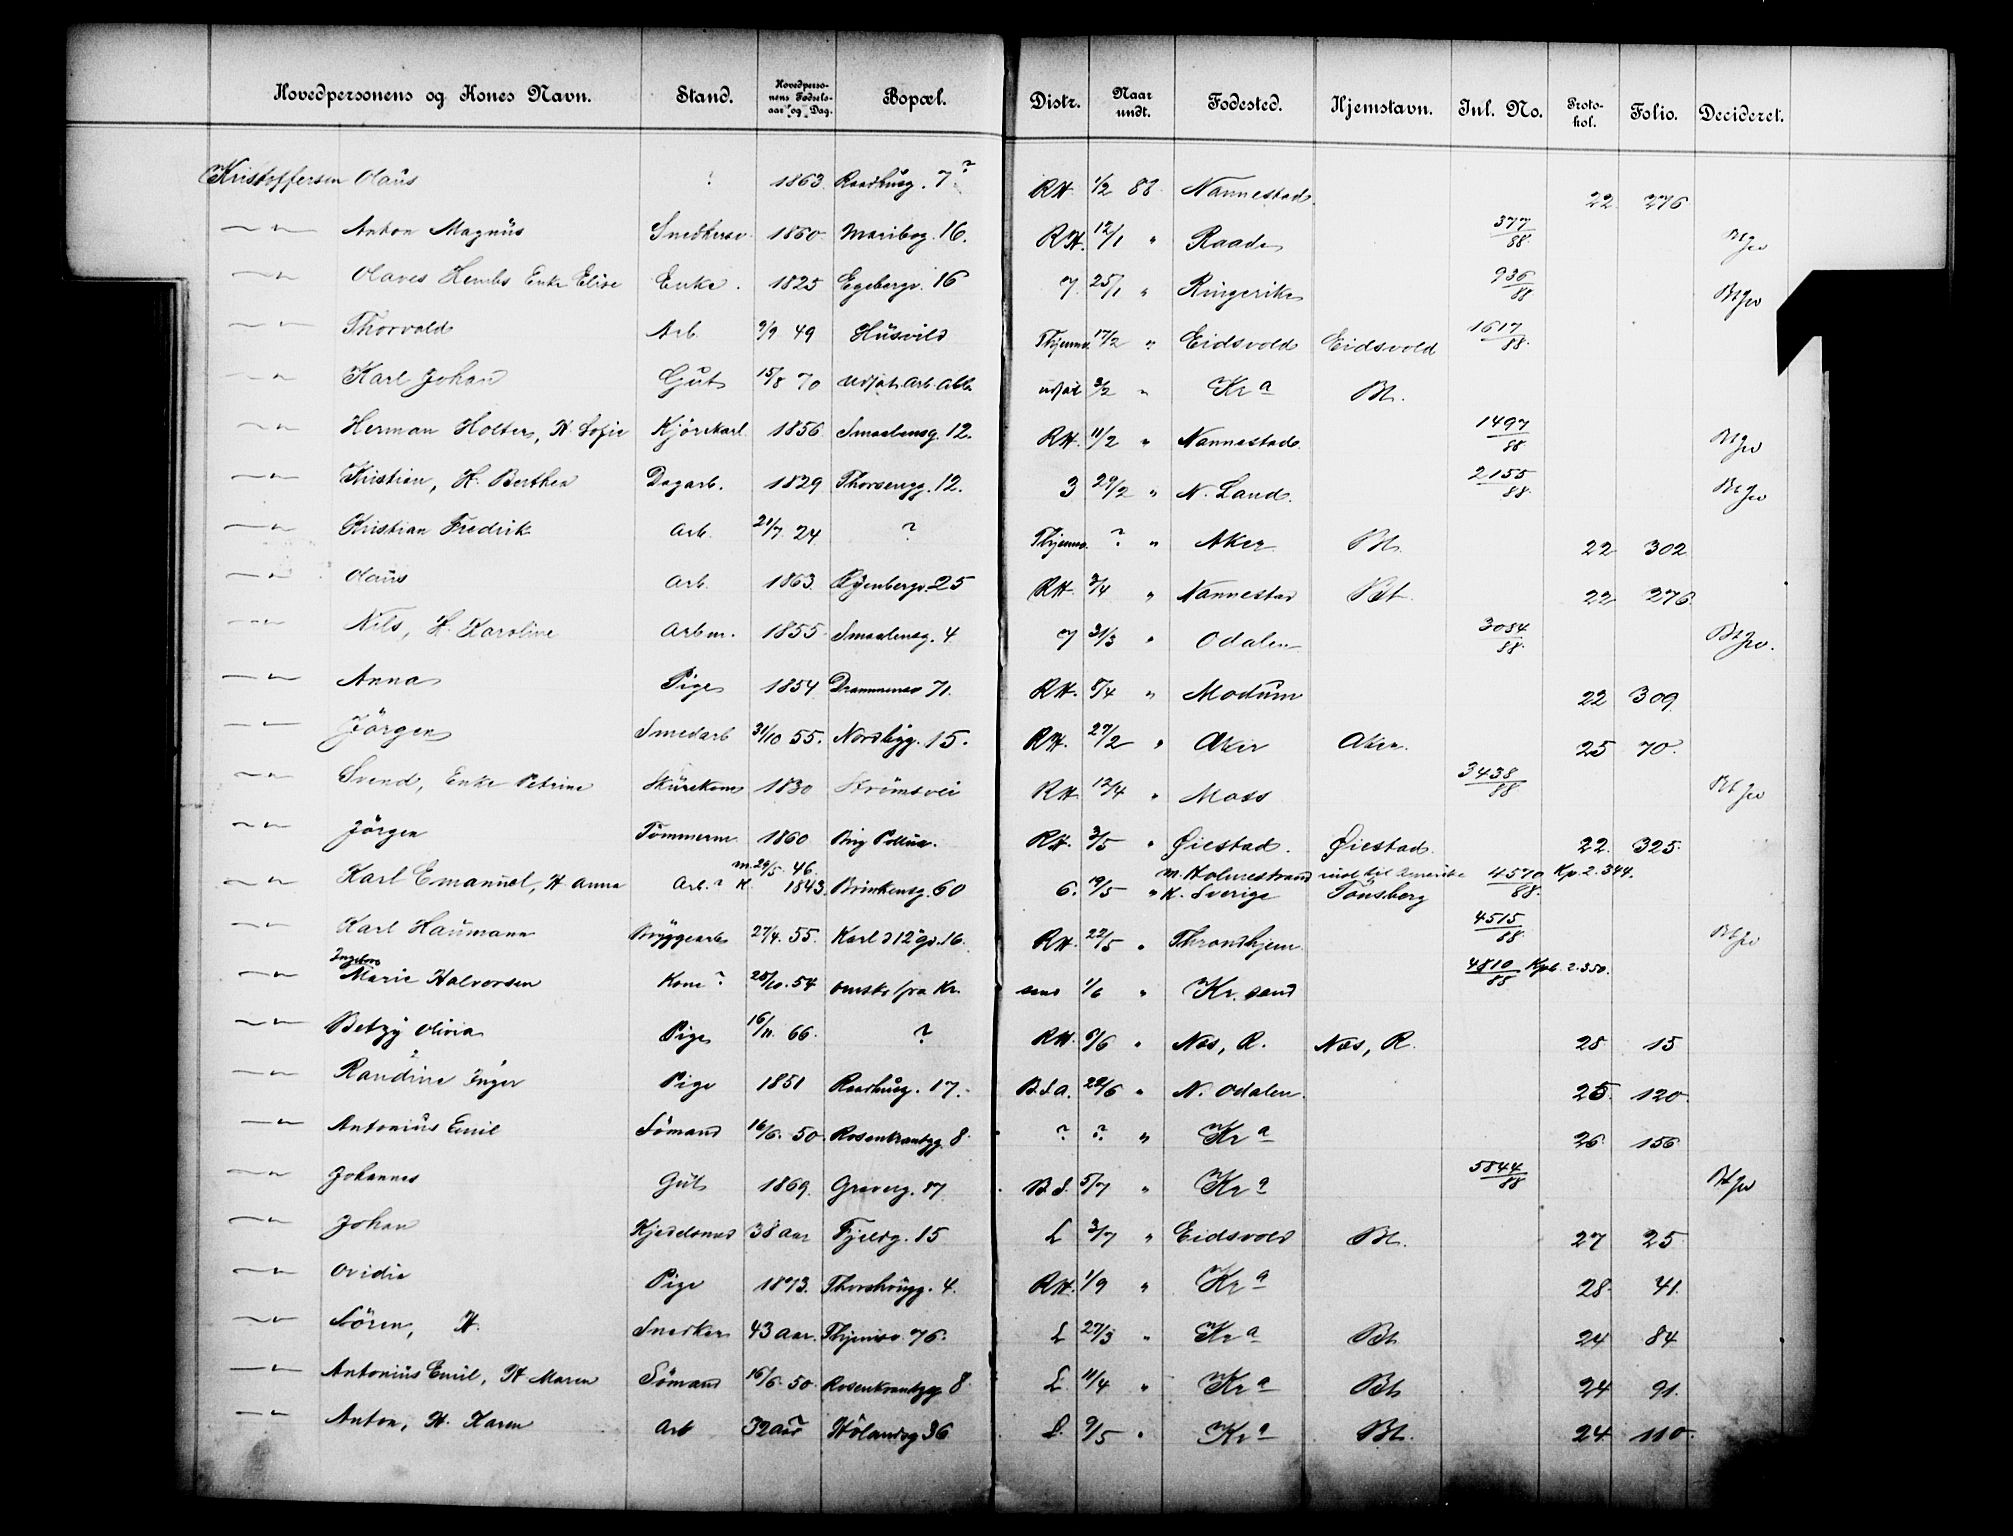 Hovedpersonens og Kones Navn. Stand. Hovedpersonens Fødselsaar og Dag. Bopæl. Distr. Naar undt. Fødested. Hjemstavn. Jnl. No. Protokol. Folio. Decideret.
Kristoffersen Olaus ? 1863 Raadhusg. 7? RH. 1/2 88 Nannestad 22 276
—"— Anton Magnus Snedkersv. 1860 Maribog. 16. RH. 12/1 " Raade 377/88
—"— Olaves Lembs Enke Elise Enke. 1825 Egebergv. 16 7. 25/1 " Ringerike 936/88
—"— Thorvald Arb. 9/9 49 Husvild Thjemsv. 17/2 " Eidsvold Eidsvold 1617/88
—"— Karl Johan Gut 15/8 70 3/2 " Kra Bt.
—"— Herman Holter, H. Sofie Kjörekarl 1856 Smaalensg. 12. RH. 11/2 " Nannestad 1497/88
—"— Kristian, H. Berthea Dagarb. 1829 Thorseng. 12. 3 29/2 " N. Land. 2155/88
—"— Kristian Fredrik Arb. 21/7 24 ? Thjemsv. ? " Aker Bt. 22 302
—"— Olaus Arb. 1863 25 RH. 3/4 " Nannestad Bt. 22 276
—"— Nils, H. Karoline Arbm. 1855 Smaalensg. 4 7 31/3 " Odalen 3084/88
—"— Anna Pige 1854 Drammensv 71. RH. 5/4 " Modum 22 309
—"— Jörgen Smedarb 31/10 55. Nordbyg. 15. RH. 27/2 " Aker Aker. 25 70.
—"— Svend, Enke Petrine Skurekone 1830 Strömsvei RH 12/4 " Moss 3438/88
—"— Jörgen Tömmerm 1860 Brig RH. 3/5 " Øiestad. Øiestad. 22. 325.
—"— Karl Emanuel, H Anna Arb.? m. 29/5 46. K 1843 Brinkensg. 60 6. 19/5 " m. Holmestrand K. Sverige Tönsberg 4570/88 Kp. 2. 344.
—"— Karl Haumann Bryggearb 27/4. 55. Karl d 12 gd. 16. RH. 22/5 " Throndhjem 4515/88
—"— Ingeborg Marie Halvorsen Kone? 25/10. 54 ønskes fra Kr. sand 1/6 " Kr. sand 4810/88 Kpb. 2. 350.
—"— Betzy Olivia Pige 16/11. 66. ? RH. 6/6 " Næs, R. Næs, R. 28 15
—"— Randine Inger Pige 1851 Raadhusg. 17. B.S.A. 22/6 " N. Odalen. 25. 120.
—"— Antonius Emil Sömand 16/6. 50. Rosenkrantzg. 8. ? ? " Kra 26. 156
—"— Johannes Gut 1869. Graverg. 17. B.S. 5/7 " Kra 5844/88
—"— Johan Kjedelsmed 38 aar Fjeldg. 15 L 3/7 " Eidsvold Bt. 27 25
—"— Ovidie Pige 1873. Thorshougg. 4. RH. 1/9 " Kra 28. 41.
—"— Sören, H. Snedker 43 aar. Thjemsv. 76. L 27/3 " Kra Bt 24 84.
—"— Antonius Emil, H Maren Sömand 16/6. 50. Rosenkrantzg 8. L. 11/4 " Kra Bt 24 91.
—"— Anton, H. Karen Arb 32 aar Hölandsg 36 L. 9/5 " Kra Bt. 24. 110.